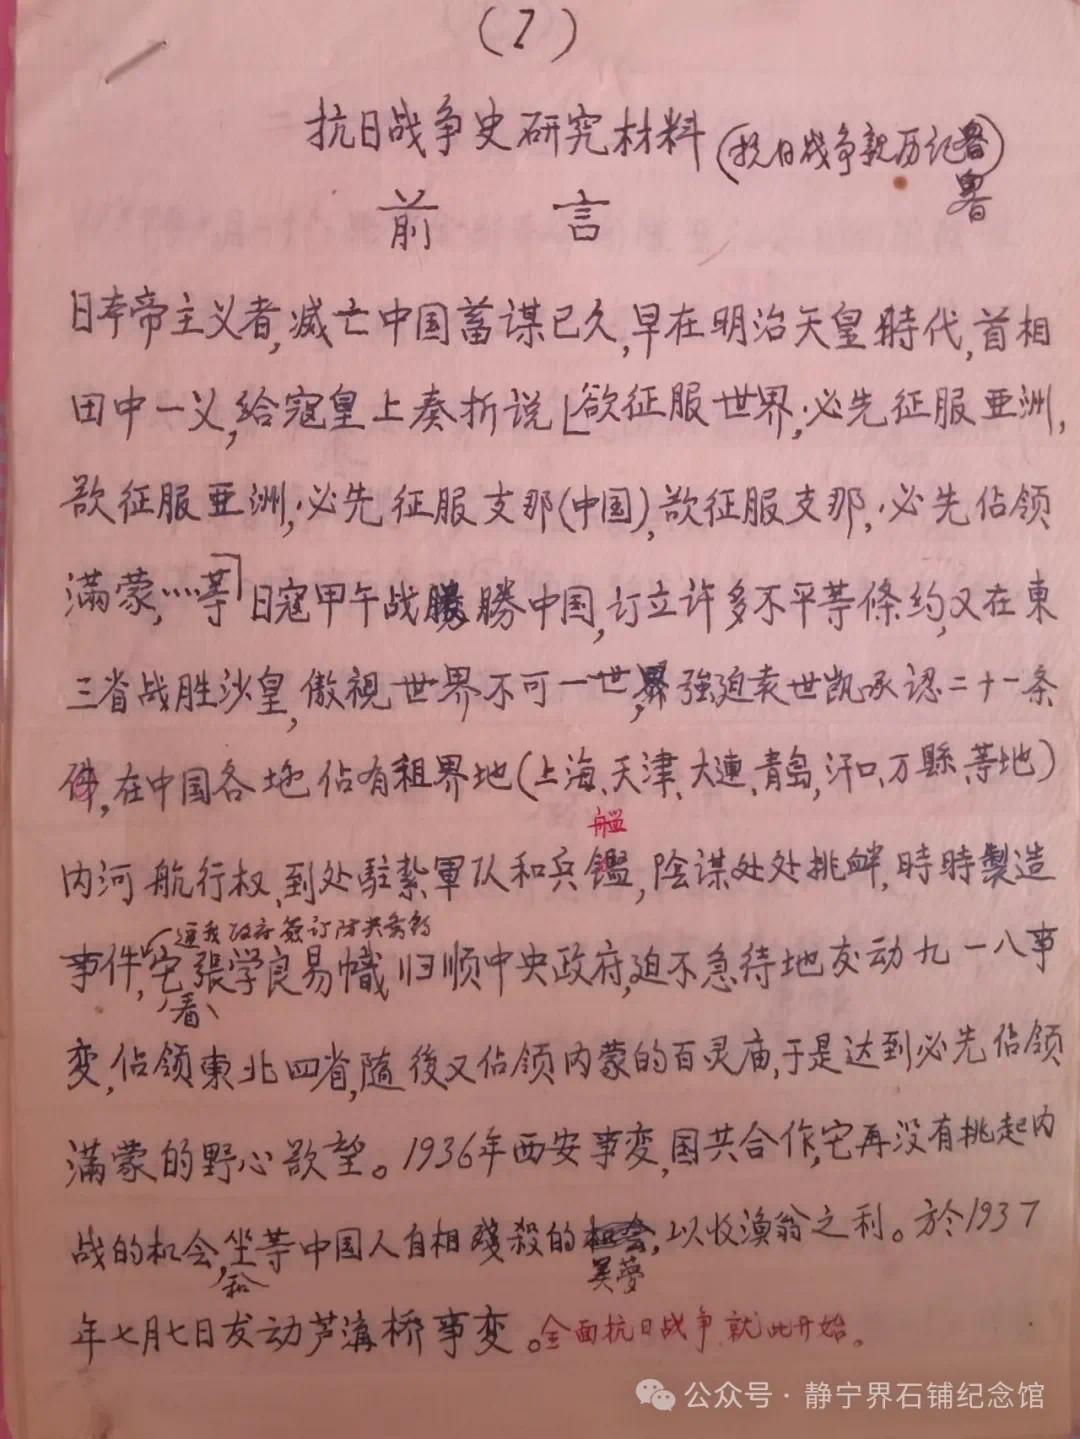 (1)
抗日战争史研究材料(抗日战争亲历纪畧)
畧
前 言
日本帝主义者,滅亡中国蓄谋已久,早在明治天皇時代,首相
田中一义,给寇皇上奏折说「欲征服世界,必先征服亚洲,
欲征服亚洲,必先征服支那(中国),欲征服支那,必先佔领
滿蒙,····等」日寇甲午战勝中国,订立许多不平等條约,又在東
三省战胜沙皇,傲視世界不可一世,強迫袁世凯承认二十一条
件,在中国各地佔有租界地(上海、天津、大連、青島,汗口、万縣、等地)
艦
内河航行权、到处駐紮軍队和兵鑑,陰谋处处挑衅,時時製造
逼我政府签订防共条约
事件,它張学良易幟归顺中央政府,迫不急待地发动九一八事
看
変,佔领東北四省,随後又佔领内蒙的百灵庙,于是达到必先佔领
滿蒙的野心欲望。1936年西安事変,国共合作,它再没有挑起内
战的机会,坐等中国人自相殘殺的机会,以收漁翁之利。於1937
和
美夢
年七月七日发动芦溝桥事変。全面抗日战争就此开始。
公众号·静宁界石铺纪念馆